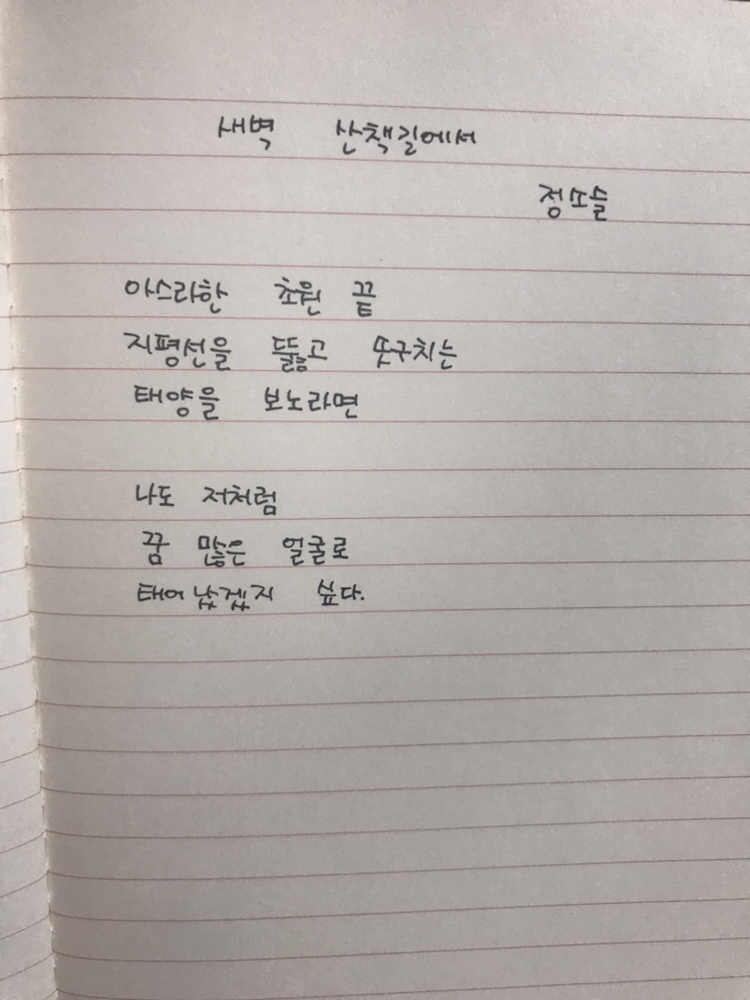 새벽 산책길에서
정소슬
아스라한 초원 끝
지평선을 뚫고 솟구치는
태양을 보노라면
나도 저처럼
꿈 많은 얼굴로
태어났겠지 싶다.